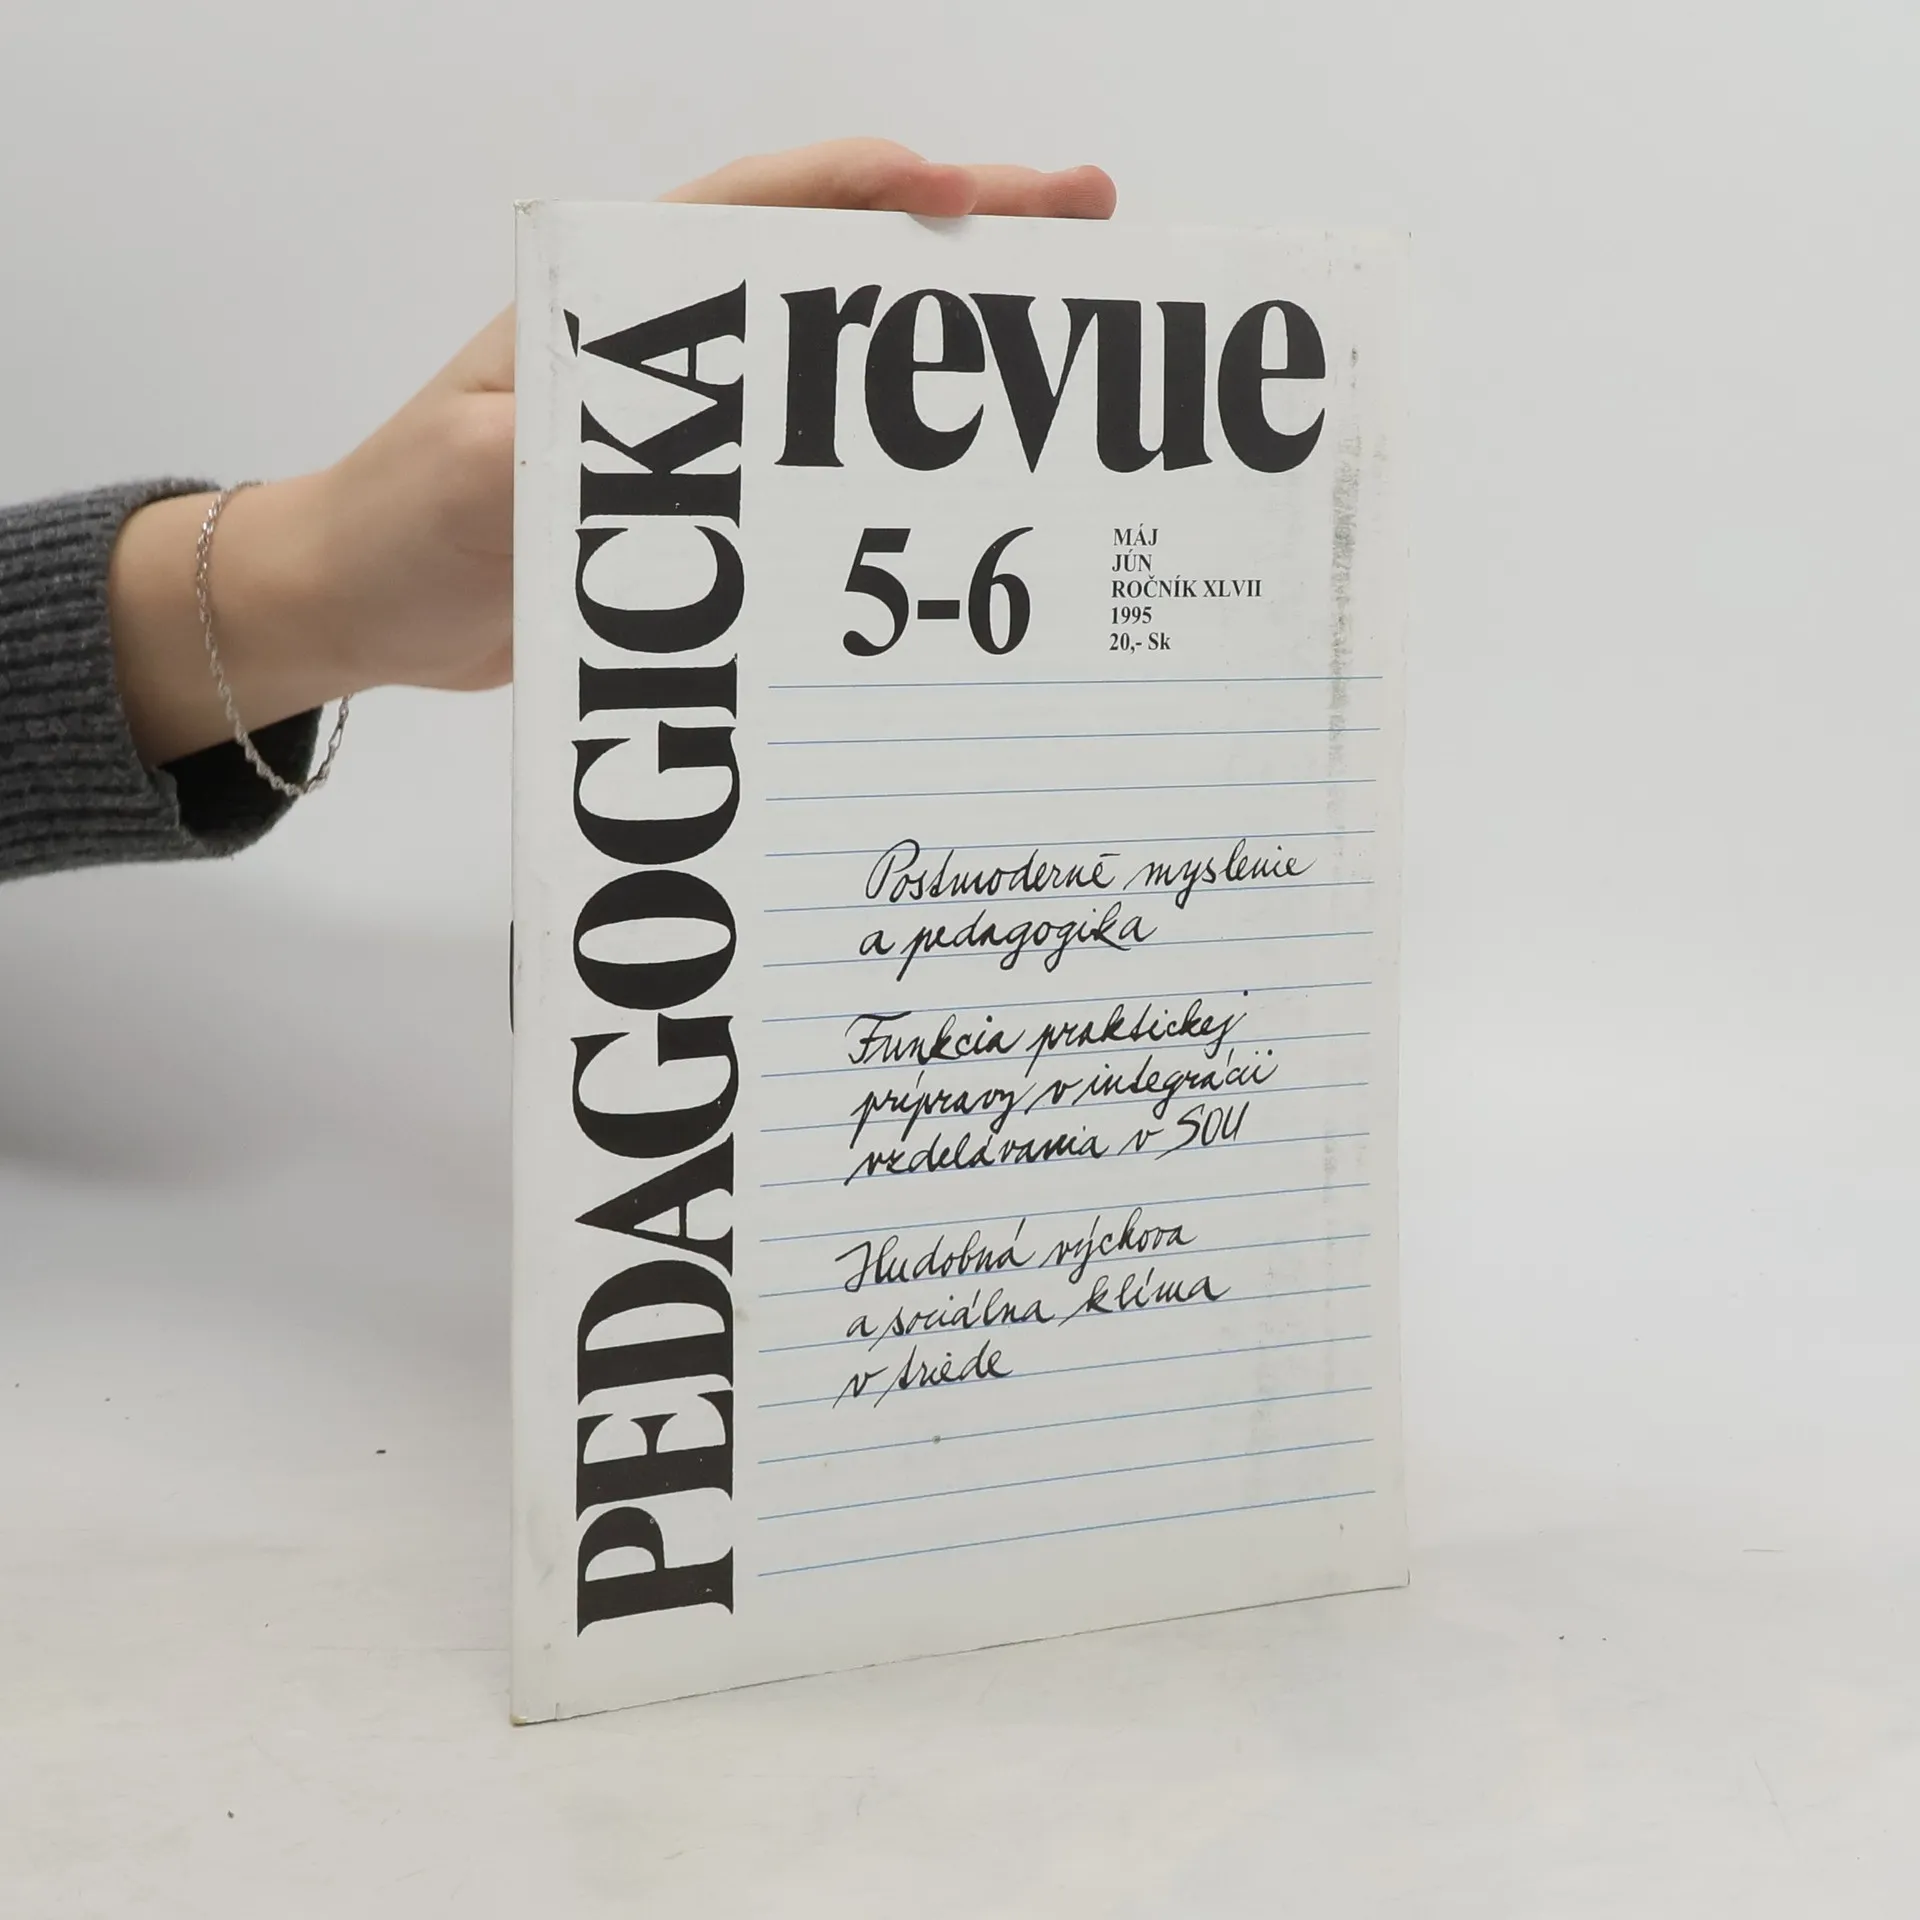 PEDAGOGICKÁ
revue
5-6
MÁJ
JÚN
ROČNÍK XLVII
1995
20,- Sk
Postmoderné myslenie
a pedagogika
Funkcia praktickej
prípravy v integrácii
vzdelávania v SOU
Hudobná výchova
a sociálna klíma
v triede